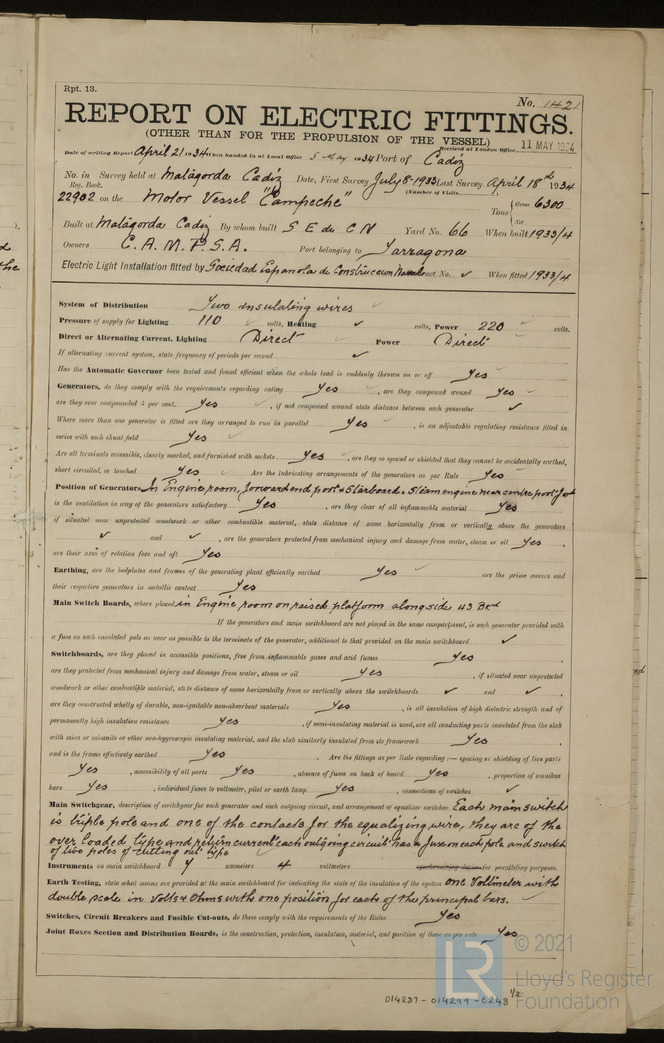 Rpt. 13.
No. 1421
REPORT ON ELECTRIC FITTINGS.
(OTHER THAN FOR THE PROPULSION OF THE VESSEL)
Received at London Office 11 MAY 1934
Date of writing Report April 21 1934 When handed in at Local Office 5 May 1934 Port of Cadiz
No. in Survey held at Matagorda Cadiz Date, First Survey July 8-1933 Last Survey April 18th 1934
Reg. Book. (Number of Visits
22902 on the Motor Vessel "Campeche" Tons { Gross 6300
Net
Built at Matagorda Cadiz By whom built S E de C N Yard No. 66 When built 1933/4
Owners C. A. M. P. S. A. Port belonging to Tarragona
Electric Light Installation fitted by Sociedad Espanola de Construccion Naval Contract No. ✓ When fitted 1933/4
System of Distribution Two insulating wires ✓
Pressure of supply for Lighting 110 ✓ volts, Heating ✓ volts, Power 220 ✓ volts.
Direct or Alternating Current, Lighting Direct ✓ Power Direct
If alternating current system, state frequency of periods per second ✓
Has the Automatic Governor been tested and found efficient when the whole load is suddenly thrown on or off Yes
Generators, do they comply with the requirements regarding rating Yes ✓, are they compound wound Yes ✓
are they over compounded 5 per cent. Yes ✓, if not compound wound state distance between each generator ✓
Where more than one generator is fitted are they arranged to run in parallel Yes ✓, is an adjustable regulating resistance fitted in
series with each shunt field Yes ✓
Are all terminals accessible, clearly marked, and furnished with sockets Yes ✓, are they so spaced or shielded that they cannot be accidentally earthed,
short circuited, or touched Yes ✓ Are the lubricating arrangements of the generators as per Rule Yes ✓
Position of Generators In Engine room, forward end port & starboard. Steam engine near centre port
is the ventilation in way of the generators satisfactory Yes ✓, are they clear of all inflammable material Yes ✓
if situated near unprotected woodwork or other combustible material, state distance of same horizontally from or vertically above the generators
✓ and ✓, are the generators protected from mechanical injury and damage from water, steam or oil Yes,
are their axes of rotation fore and aft Yes
Earthing, are the bedplates and frames of the generating plant efficiently earthed Yes ✓ are the prime movers and
their respective generators in metallic contact Yes
Main Switch Boards, where placed in Engine room on raised platform alongside 43 Bkd
If the generators and main switchboard are not placed in the same compartment, is each generator provided with
a fuse on each insulated pole as near as possible to the terminals of the generator, additional to that provided on the main switchboard ✓
Switchboards, are they placed in accessible positions, free from inflammable gases and acid fumes Yes,
are they protected from mechanical injury and damage from water, steam or oil Yes, if situated near unprotected
woodwork or other combustible material, state distance of same horizontally from or vertically above the switchboards ✓ and ✓,
are they constructed wholly of durable, non-ignitable non-absorbent materials Yes, is all insulation of high dielectric strength and of
permanently high insulation resistance Yes, if semi-insulating material is used, are all conducting parts insulated from the slab
with mica or micanite or other non-hygroscopic insulating material, and the slab similarly insulated from its framework Yes,
and is the frame effectively earthed Yes. Are the fittings as per Rule regarding:— spacing or shielding of live parts
Yes, accessibility of all parts Yes, absence of fuses on back of board Yes, proportion of omnibus
bars Yes, individual fuses to voltmeter, pilot or earth lamp Yes, connections of switches ✓
Main Switchgear, description of switchgear for each generator and each outgoing circuit, and arrangement of equalizer switches Each main switch
is triple pole and one of the contacts for the equalizing wire, they are of the
over loaded type and return current each outgoing circuit has a fuse on each pole and switch
of two poles of cutting out type
Instruments on main switchboard 7 ammeters 4 voltmeters synchronising device for paralleling purposes.
Earth Testing, state what means are provided at the main switchboard for indicating the state of the insulation of the system one Voltmeter with
double scale in Volts & Ohms with one position for each of the principal bars.
Switches, Circuit Breakers and Fusible Cut-outs, do these comply with the requirements of the Rules Yes
Joint Boxes Section and Distribution Boards, is the construction, protection, insulation, material, and position of these as per rule Yes
LR © 2021
Lloyd's Register
Foundation
014287-014299-0248 1/2